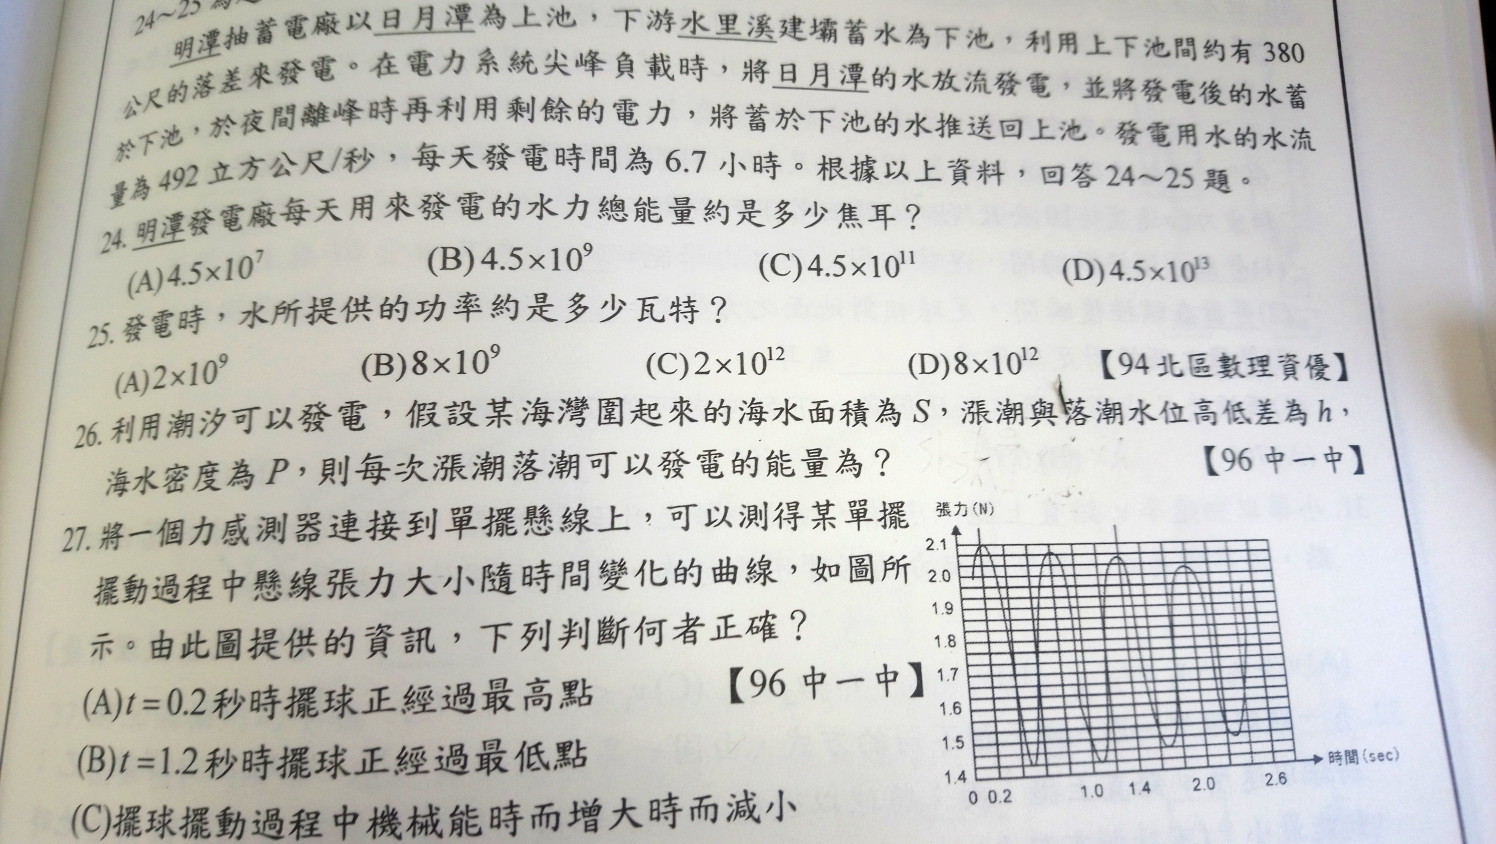 24～25
明潭抽蓄電廠以日月潭為上池，下游水里溪建壩蓄水為下池，利用上下池間約有 380
公尺的落差來發電。在電力系統尖峰負載時，將日月潭的水放流發電，並將發電後的水蓄
於下池，於夜間離峰時再利用剩餘的電力，將蓄於下池的水推送回上池。發電用水的水流
量為 492 立方公尺/秒，每天發電時間為 6.7 小時。根據以上資料，回答 24～25 題。
24. 明潭發電廠每天用來發電的水力總能量約是多少焦耳？
(A) 4.5×10⁷ (B) 4.5×10⁹ (C) 4.5×10¹¹ (D) 4.5×10¹³
25. 發電時，水所提供的功率約是多少瓦特？
(A) 2×10⁹ (B) 8×10⁹ (C) 2×10¹² (D) 8×10¹² 【94 北區數理資優】
26. 利用潮汐可以發電，假設某海灣圍起來的海水面積為 S，漲潮與落潮水位高低差為 h，
海水密度為 P，則每次漲潮落潮可以發電的能量為？ 【96 中一中】
27. 將一個力感測器連接到單擺懸線上，可以測得某單擺
擺動過程中懸線張力大小隨時間變化的曲線，如圖所
示。由此圖提供的資訊，下列判斷何者正確？
【96 中一中】
(A) t = 0.2 秒時擺球正經過最高點
(B) t = 1.2 秒時擺球正經過最低點
(C) 擺球擺動過程中機械能時而增大時而減小
張力(N)
2.1
2.0
1.9
1.8
1.7
1.6
1.5
1.4
0 0.2 1.0 1.4 2.0 2.6
時間(sec)